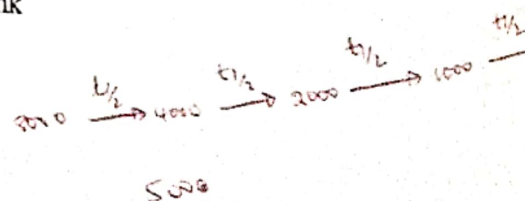 nk
8000 t1/2 → 4000 t1/2 → 2000 t1/2 → 1000 t1/2
5000